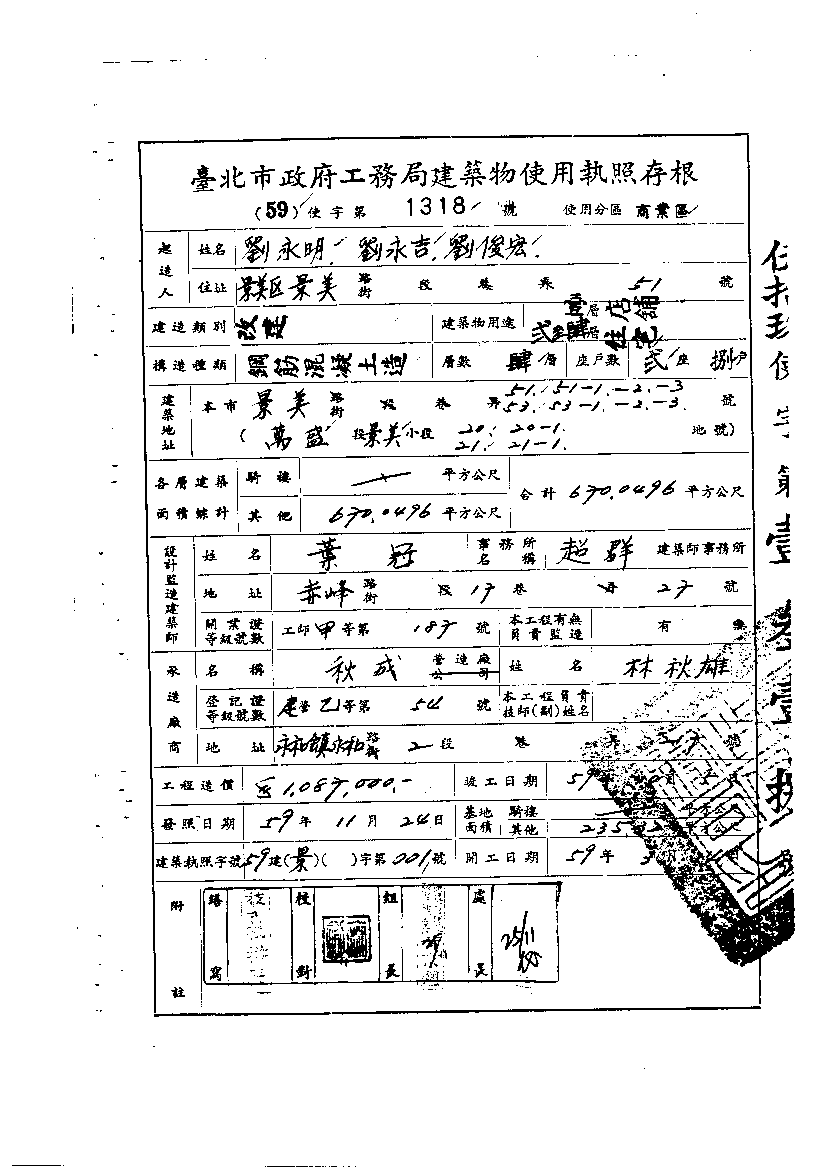 臺北市政府工務局建築物使用執照存根
(59)使字第 1318 號 使用分區 商業區
起造人 姓名 劉永明 劉永吉 劉俊宏
住址 景美區景美 路街 段 巷 弄 51 號
建造類別 改建 建築物用途 層店舖 貳至肆層住宅
構造種類 鋼筋混凝土造 層數 肆層 座戶數 貳座 捌戶
建築地址 本市 景美 路街 段 巷 弄 51. 51-1. -2. -3 53. 53-1. -2. -3. 號
(萬盛段景美小段 20. 20-1. 21. 21-1. 地號)
各層建築面積總計 騎樓 平方公尺 合計 670.0496 平方公尺
其他 670.0496 平方公尺
設計監造建築師 姓名 葉冠 事務所名稱 超群 建築師事務所
地址 赤峰 路街 段 17 巷 弄 27 號
開業證等級號數 工師甲等第 187 號 本工程有無負責監造 有 無
承造廠商 名稱 秋成 營造廠公司 姓名 林秋雄
登記證等級號數 建營乙等第 54 號 本工程負責技師(副)姓名
地址 永和鎮永和 路街 2 段 巷 號
工程造價 1,087,000.- 竣工日期 59年
發照日期 59年 11月 24日 基地面積 騎樓 平方公尺 其他 235. 平方公尺
建築執照字號 59建(景)( )字第001號 開工日期 59年 3月
附註 繕寫 校對 組長 處長
25/11